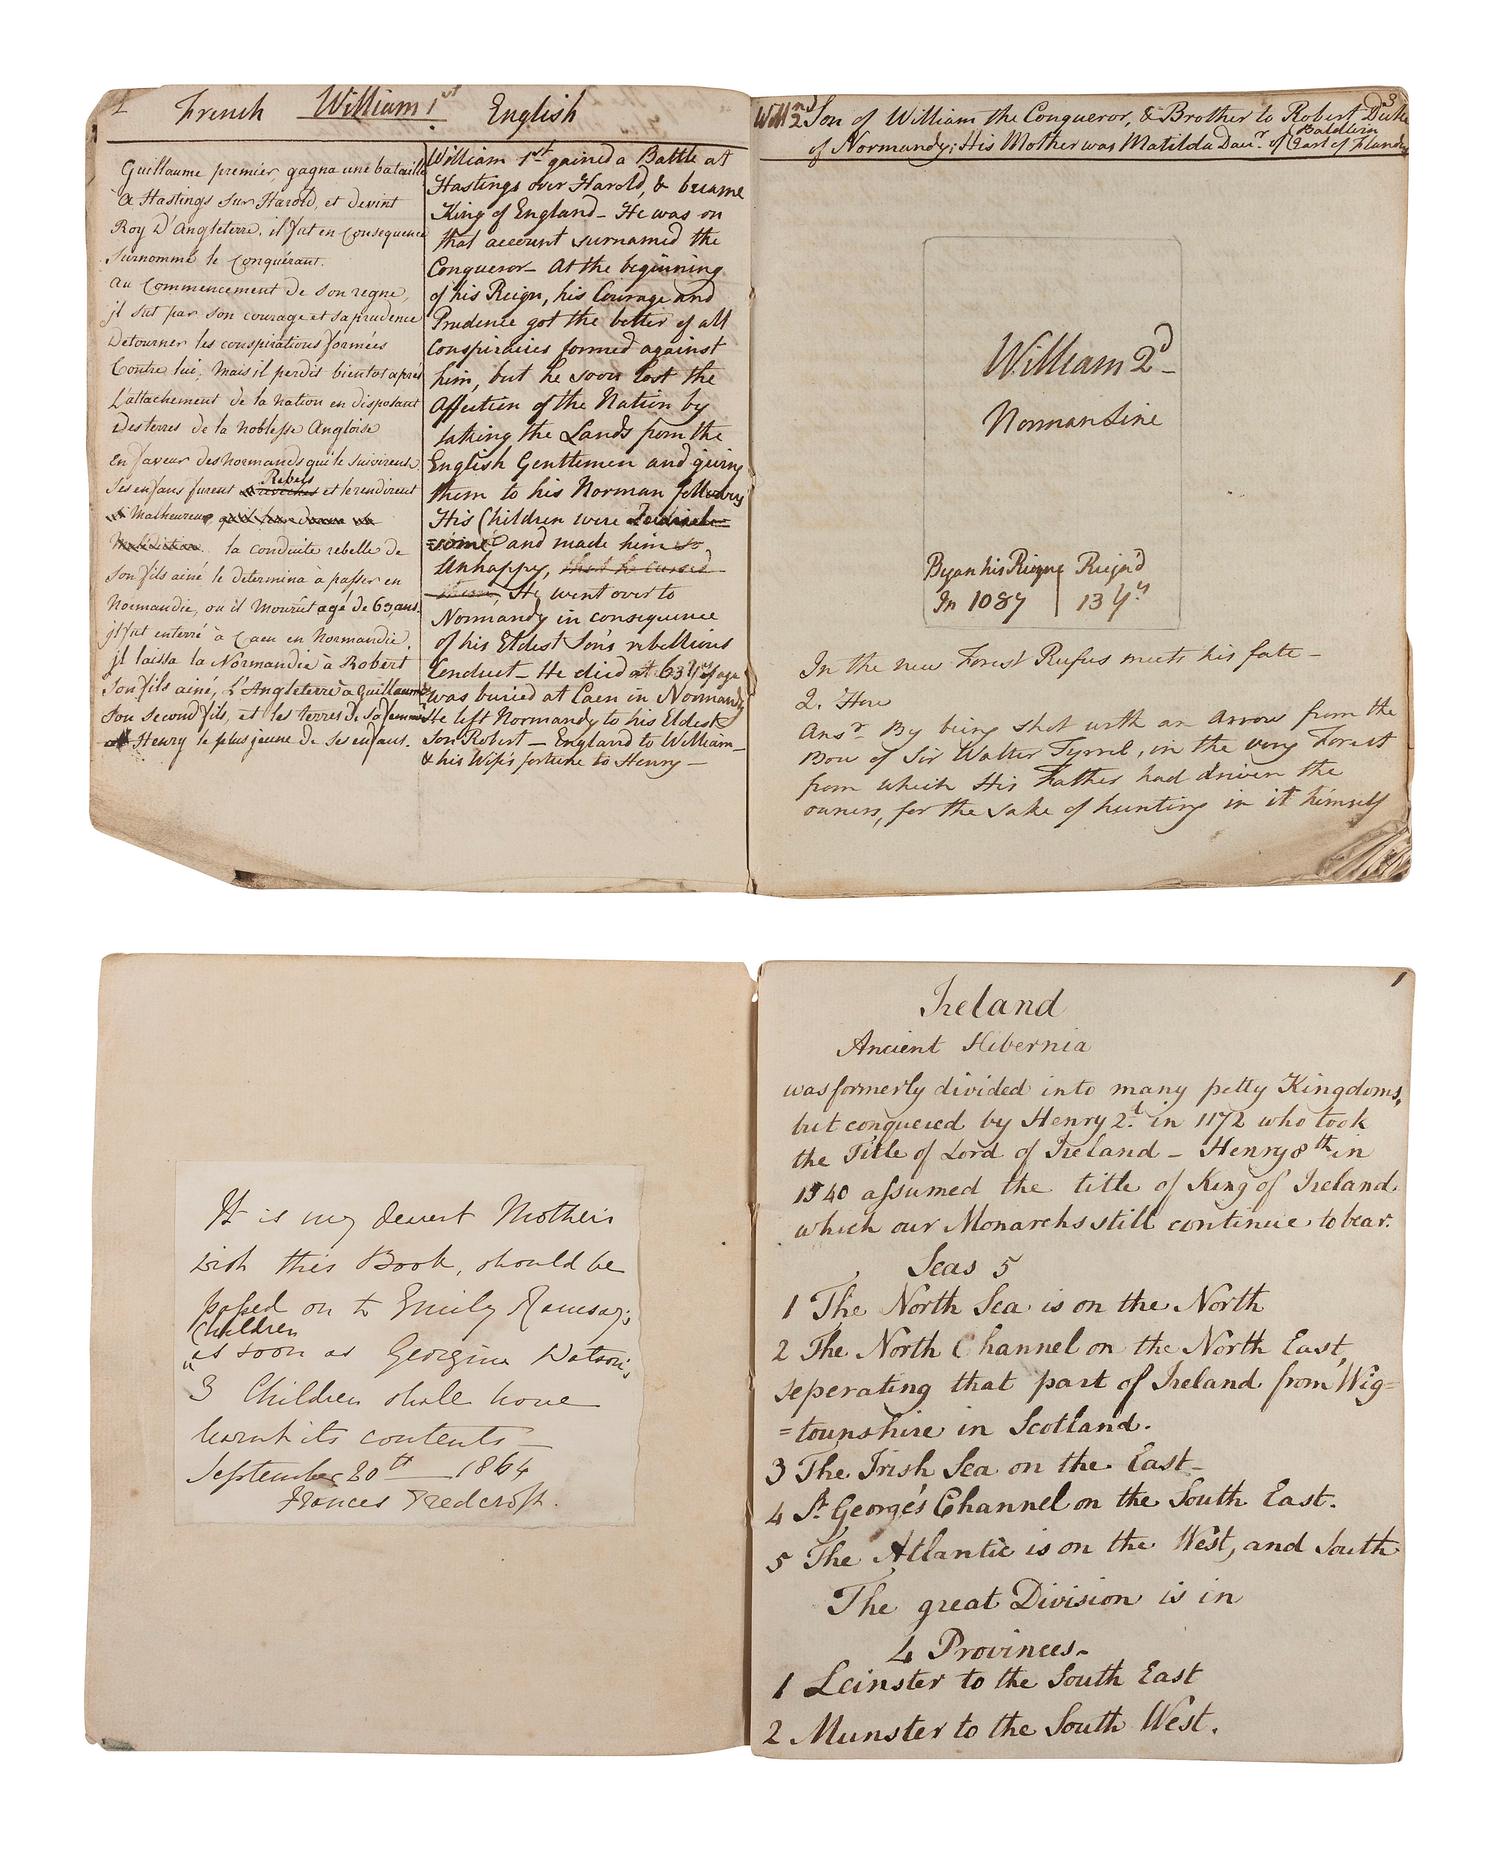 2 French William 1st English
Guillaume premier gagna une bataille
à Hastings sur Harold, et devint
Roy D'Angleterre. il fut en consequence
Surnommé le Conquérant.
au Commencement de Son regne,
jl sut par son courage et sa prudence
Detourner les conspirations formées
Contre lui, Mais il perdit bientot apres
L'attachement de la nation en disposant
des terres de la noblesse Angloise
en faveur des Normands qui le suivirent.
Rebels
Ses enfans furent et le rendirent
Malheureux
la conduite rebelle de
Son fils ainé le determina à passer en
Normandie, ou il Mourût agé de 63 ans.
jl fut enterré à Caen en Normandie.
jl laissa la Normandie à Robert
Son fils ainé, L'Angleterre à Guillaume
Son Second fils, et les terres de Sa femme
à Henry le plus jeune de ses enfans.
William 1st gained a Battle at
Hastings over Harold, & became
King of England - He was on
that account surnamed the
Conqueror - At the beginning
of his Reign, his Courage and
Prudence got the better of all
Conspiracies formed against
him, but he soon lost the
Affection of the Nation by
taking the Lands from the
English Gentlemen and giving
them to his Norman followers
His Children were
and made him so
Unhappy, that he cursed
them, He went over to
Normandy in consequence
of his Eldest Son's rebellious
Conduct - He died at 63 yrs of age
was buried at Caen in Normandy
He left Normandy to his Eldest
Son Robert - England to William -
& his Wife's fortune to Henry -
3
Willm 2nd Son of William the Conqueror, & Brother to Robert Duke
of Normandy; His Mother was Matilda Daur. of Baldwin Earl of Flanders
William 2d -
Norman Line
Began his Reigne Reign'd
In 1087 13 Yrs
In the new Forest Rufus meets his fate -
2. How
Ansr. By being shot with an Arrow from the
Bow of Sir Walter Tyrrel, in the very Forest
from which His Father had driven the
owners, for the sake of hunting in it himself
It is my dearest Mother's
wish this Book, should be
passed on to Emily Ramsay's
Children
as soon as Georgina Watson's
3 Children shall have
learnt its contents -
September 20th 1864
Frances Fredcroft.
1
Ireland
Ancient Hibernia
was formerly divided into many petty Kingdoms,
but conquered by Henry 2d. in 1172 who took
the Title of Lord of Ireland - Henry 8th in
1540 assumed the title of King of Ireland
which our Monarchs still continue to bear.
Seas 5
1 The North Sea is on the North
2 The North Channel on the North East,
seperating that part of Ireland from Wig=
=tounshire in Scotland.
3 The Irish Sea on the East -
4 St. George's Channel on the South East.
5 The Atlantic is on the West, and South
The great Division is in
4 Provinces -
1 Leinster to the South East
2 Munster to the South West.